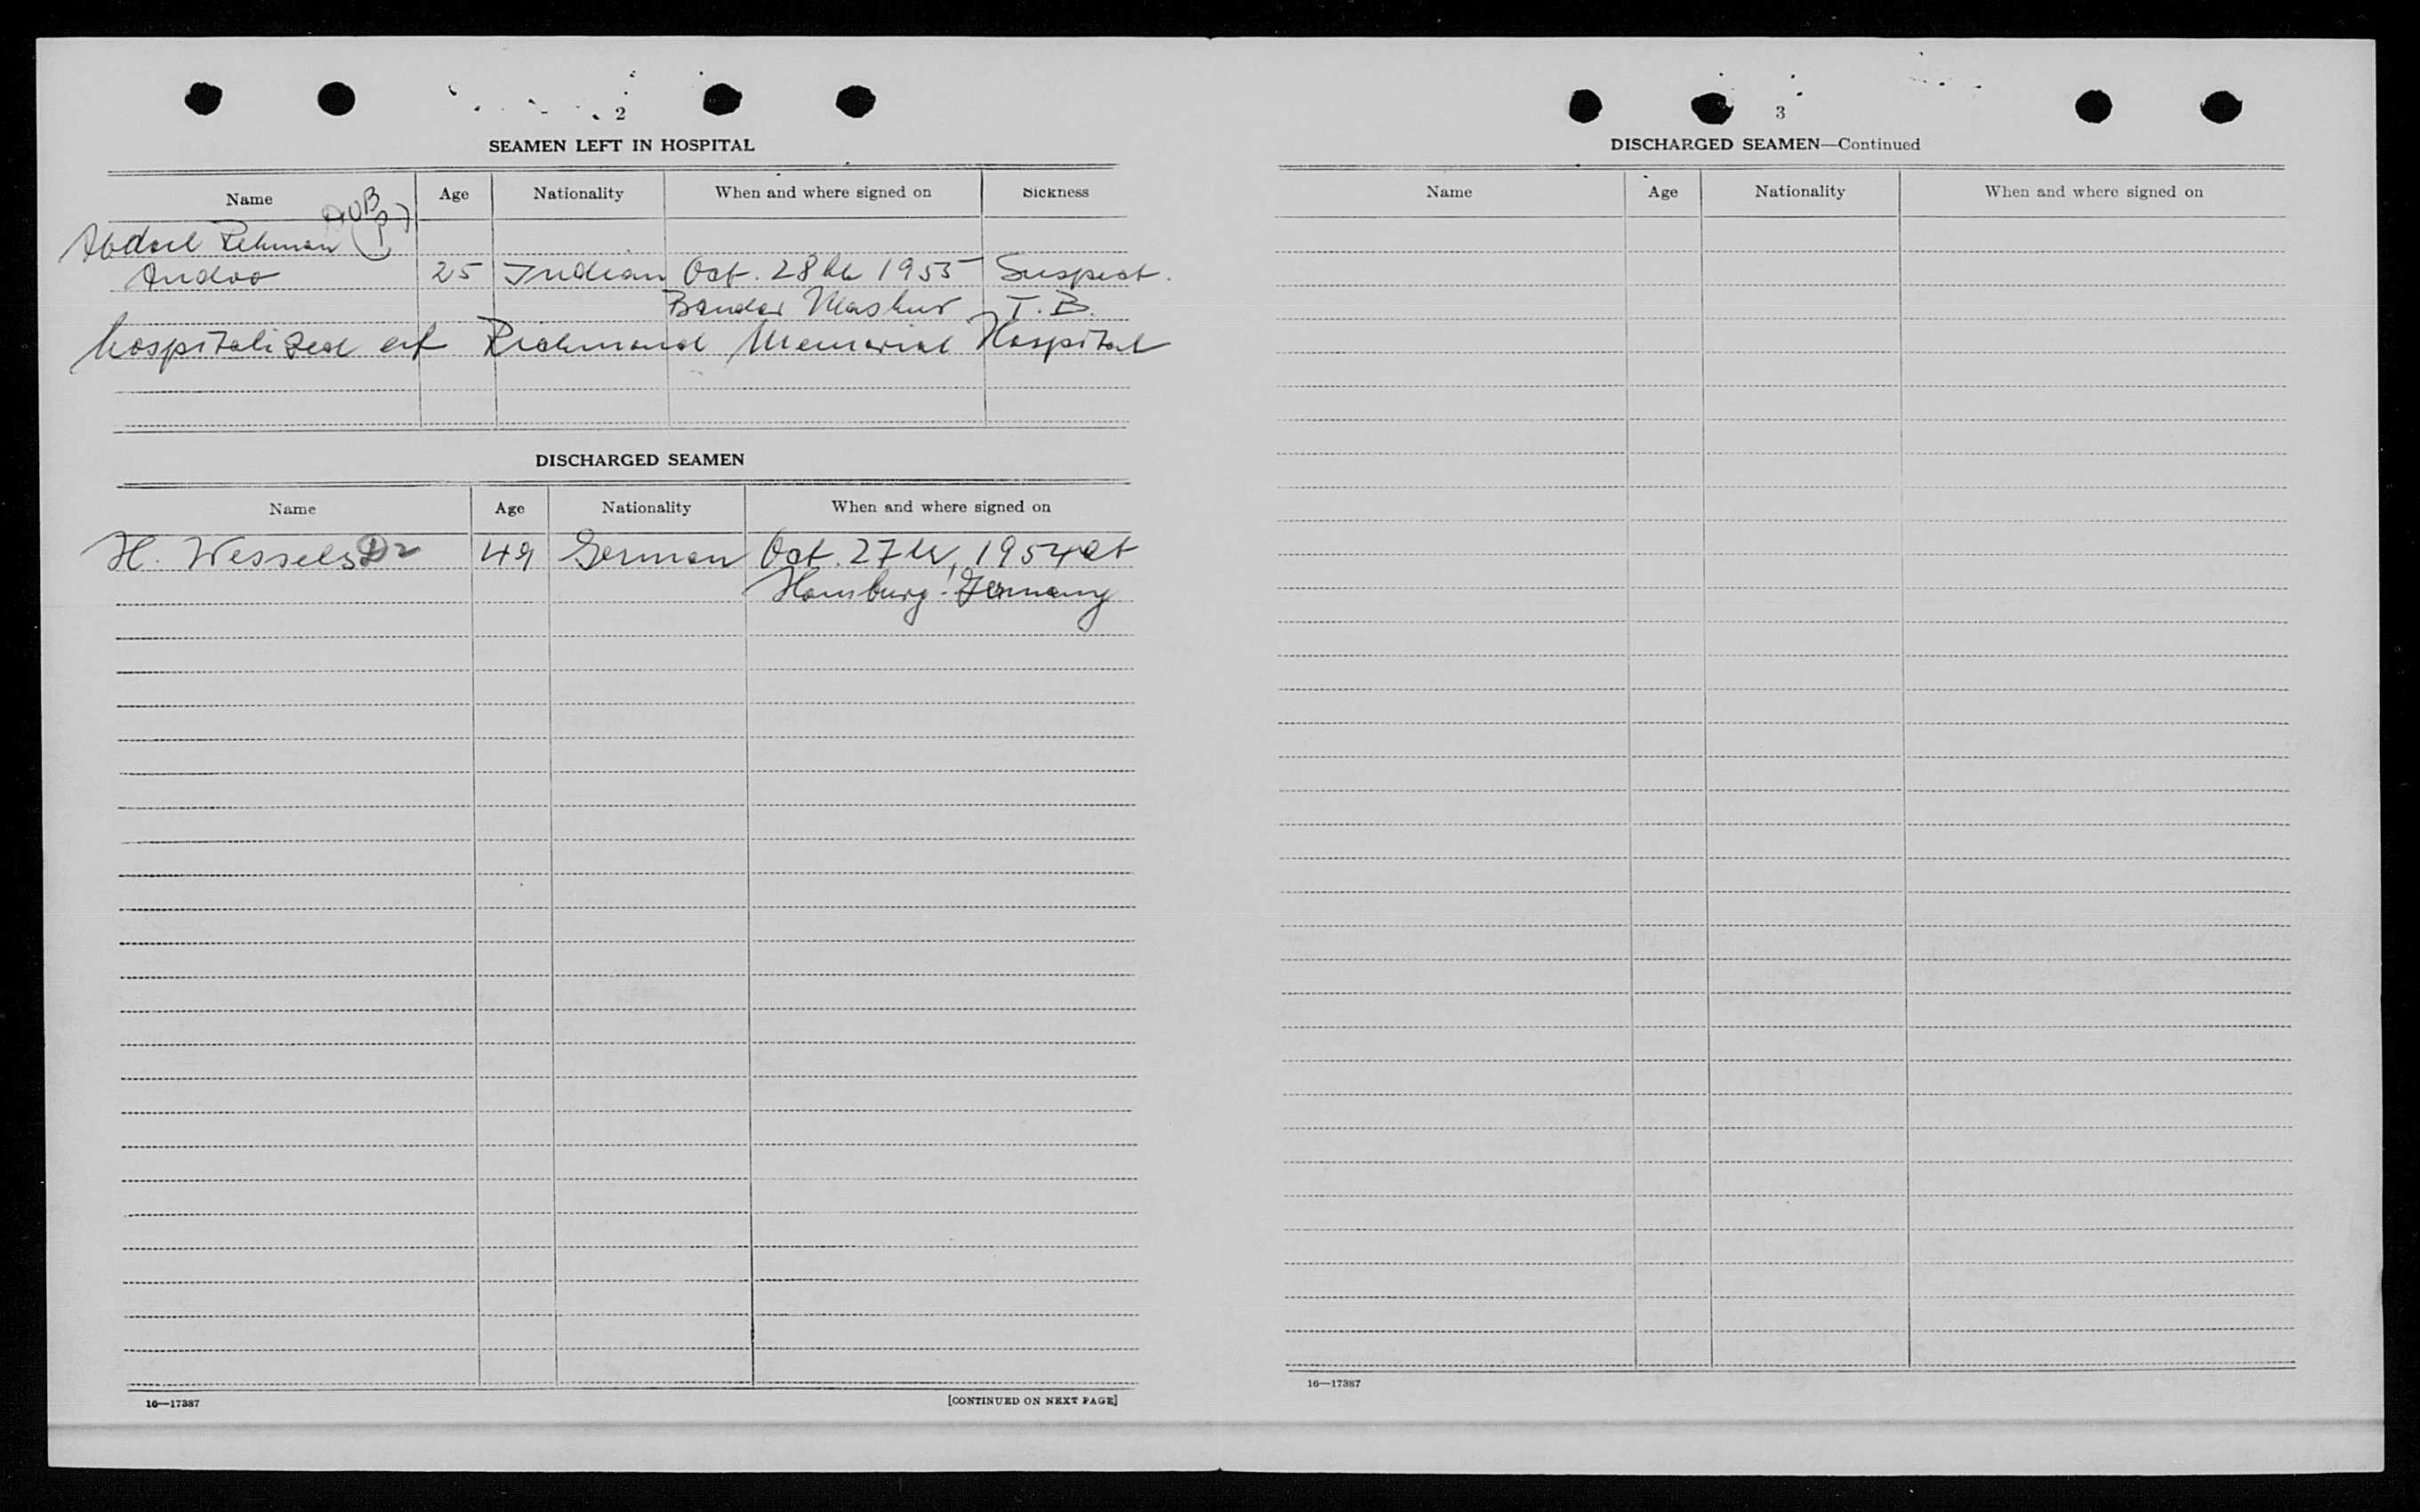 2
SEAMEN LEFT IN HOSPITAL
Name Age Nationality When and where signed on Sickness
Abdul Rehman
Andoo 25 Indian Oct. 28th 1955 Suspect.
Bandar Mashur T.B.
hospitalized at Richmond Memorial Hospital
DISCHARGED SEAMEN
Name Age Nationality When and where signed on
H. Wessels 49 German Oct. 27th, 1954 at
Hamburg-Germany
16—17387 [CONTINUED ON NEXT PAGE]
3
DISCHARGED SEAMEN—Continued
Name Age Nationality When and where signed on
16—17387